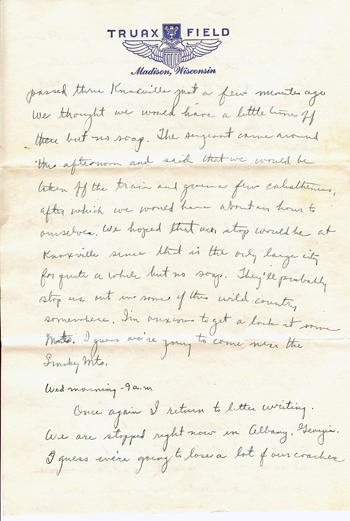 TRUAX FIELD
Madison, Wisconsin
passed thru Knoxville just a few minutes ago
We thought we would have a little time off
there but no soap. The sergeant came around
this afternoon and said that we would be
taken off the train and given a few calisthenics,
after which we would have about an hour to
ourselves. We hoped that our stop would be at
Knoxville since that is the only large city
for quite a while but no soap. They'll probably
stop us out in some of this wild country
somewhere. I'm anxious to get a look at some
Mts. I guess we're going to come near the
Smoky Mts.
Wed morning - 9 a.m
Once again I return to letter writing.
We are stopped right now in Albany, Georgia.
I guess we're going to lose a lot of our coaches